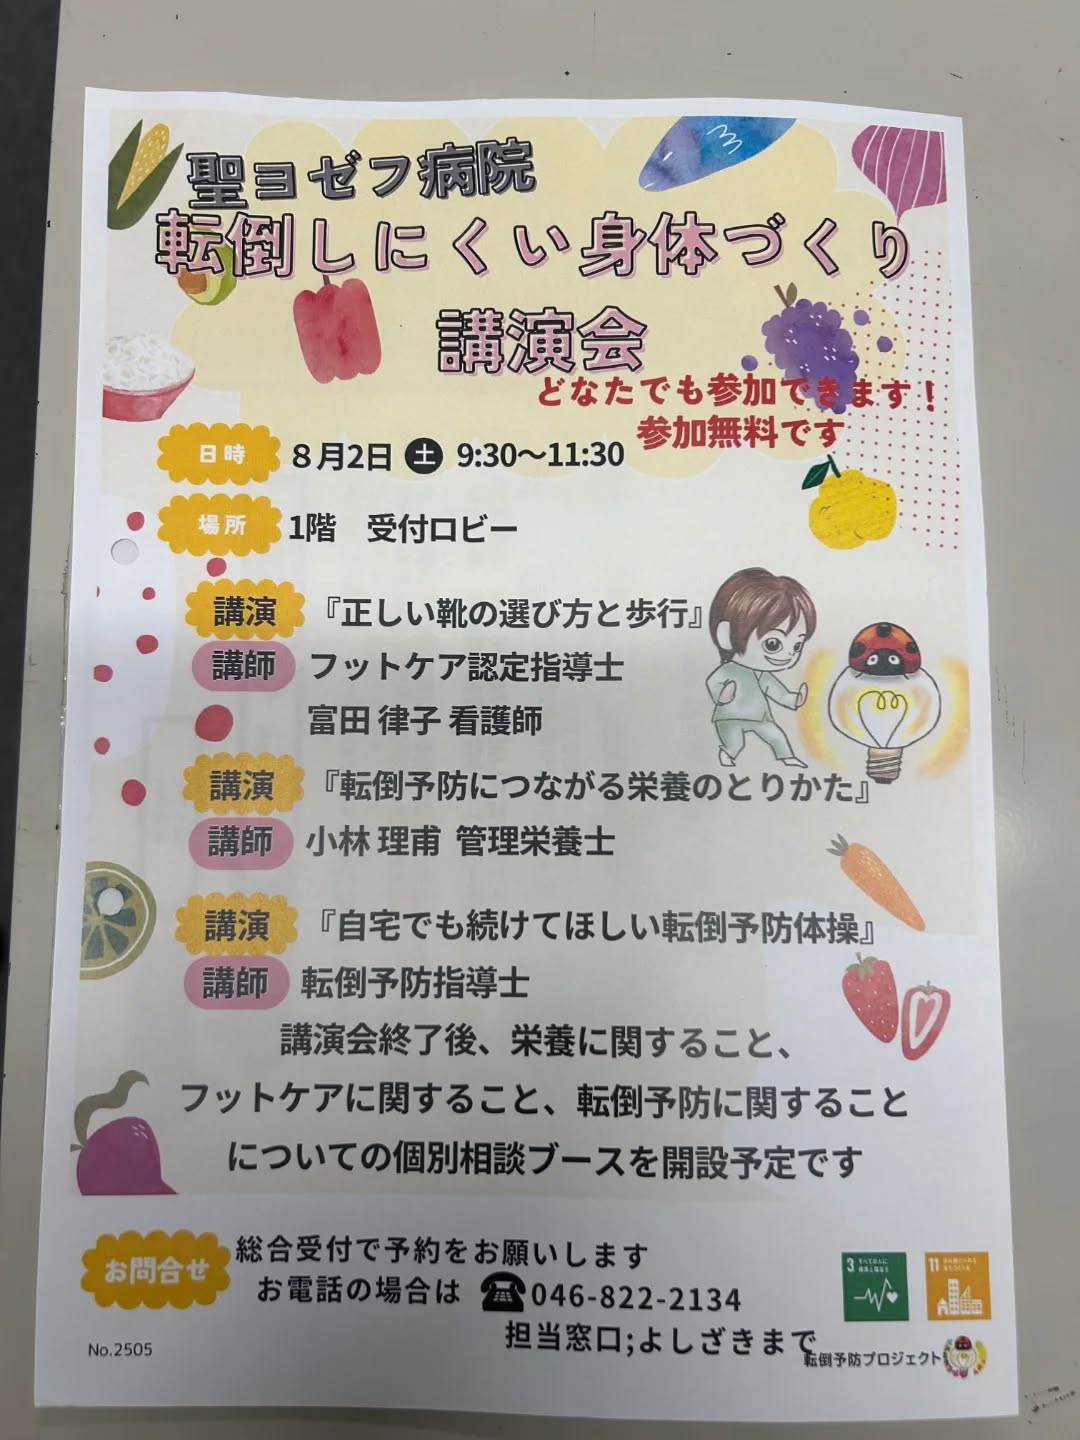 聖ヨゼフ病院
転倒しにくい身体づくり
講演会
どなたでも参加できます！
参加無料です
日時 8月2日 土 9:30～11:30
場所 1階 受付ロビー
講演 『正しい靴の選び方と歩行』
講師 フットケア認定指導士
富田 律子 看護師
講演 『転倒予防につながる栄養のとりかた』
講師 小林 理甫 管理栄養士
講演 『自宅でも続けてほしい転倒予防体操』
講師 転倒予防指導士
講演会終了後、栄養に関すること、
フットケアに関すること、転倒予防に関すること
についての個別相談ブースを開設予定です
お問合せ 総合受付で予約をお願いします
お電話の場合は ☎046-822-2134
担当窓口;よしざきまで
3 すべての人に
健康と福祉を
11 住み続けられる
まちづくりを
No.2505
転倒予防プロジェクト